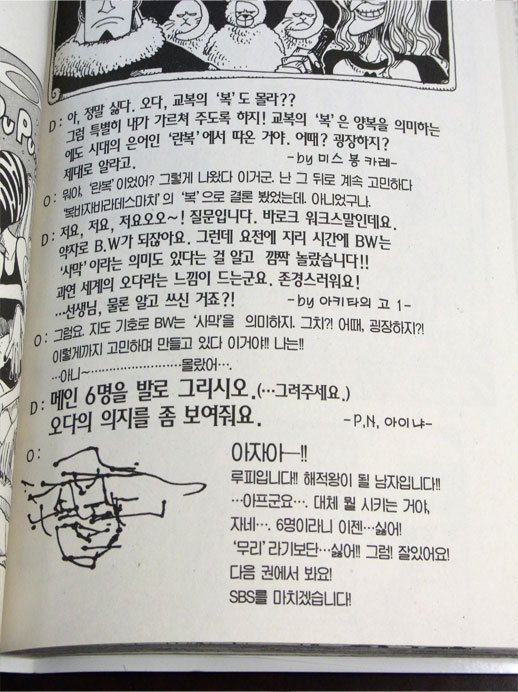 D: 아, 정말 싫다. 오다, 교복의 '복' 도 몰라??
그럼 특별히 내가 가르쳐 주도록 하지! 교복의 '복' 은 양복을 의미하는
에도 시대의 은어인 '란복' 에서 따온 거야. 어때? 굉장하지?
제대로 알라고. -by 미스 봉 카레-
O: 뭐야, '란복' 이었어? 그렇게 나왔다 이거군. 난 그 뒤로 계속 고민하다
'복바지바라데스마치' 의 '복' 으로 결론 봤었는데. 아니었구나.
D: 저요, 저요, 저요오오~! 질문입니다. 바로크 워크스말인데요.
약자로 B.W가 되잖아요. 그런데 요전에 지리 시간에 BW는
'사막' 이라는 의미도 있다는 걸 알고 깜짝 놀랐습니다!!
과연 세계의 오다라는 느낌이 드는군요. 존경스러워요!
…선생님, 물론 알고 쓰신 거죠?! -by 아키타의 고 1-
O: 그럼요. 지도 기호로 BW는 '사막'을 의미하지. 그치?! 어때, 굉장하지?!
이렇게까지 고민하며 만들고 있다 이거야!! 나는!!
…아니~……………………몰랐어….
D: 메인 6명을 발로 그리시오.(…그려주세요.)
오다의 의지를 좀 보여줘요. -P.N, 아이냐-
O: 아자아―!!
루피입니다!! 해적왕이 될 남자입니다!!
…아프군요…. 대체 뭘 시키는 거야,
자네…. 6명이라니 이젠…싫어!
'무리' 라기보단…싫어!! 그럼! 잘있어요!
다음 권에서 봐요!
SBS를 마치겠습니다!